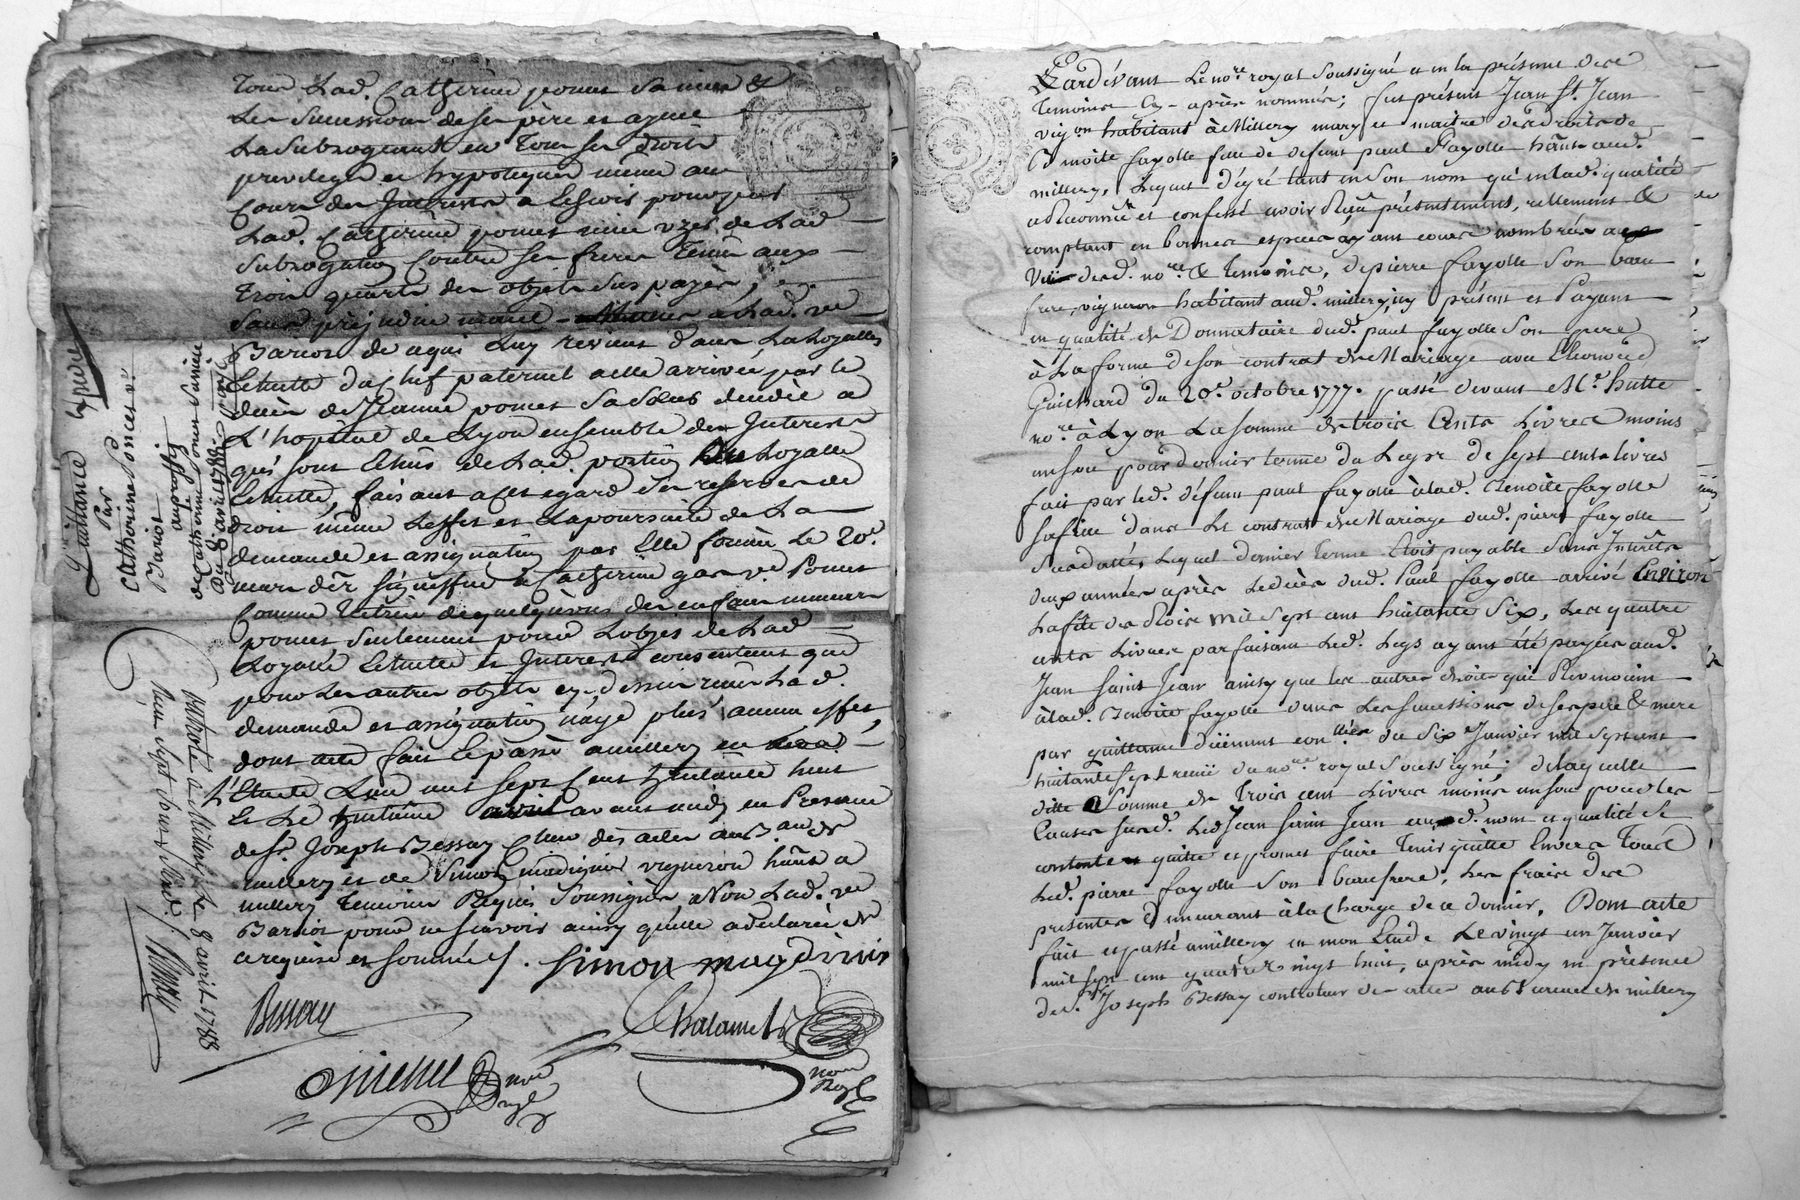 tous Lad. Catherine poncet Sa mere &
Les Succession de Ses père et ayeul
La Subrogeant en Tous Ses Droits
privileges et hypoteques même au
Cours des Interests a Escuis pour par
Lad. Catherine poncet user de Lad
Subrogation Contre Ses freres Tenus aux
Trois quarts des objets Sus payés,
Sans préjudice à Lad. ve
Bariot de ce qui Luy revient dans La Loyalle
Echutte du chef paternel a elle arrivée par le
décès de Jeanne poncet Sa Sœur décédée a
L'hopital de Lyon ensemble des Interests
qui sont Echus de Lad. portion Loyalle
Echutte, faisant a cet egard des reserves de
droit même Leffet et La poursuite de La
demande et assignation par Elle formée Le 20e.
mars der Catherine gas ve. Poncet
Comme Tutrice de quelqu'uns des enfans mineurs
poncet Seulement pour Lobjet de Lad
Loyalle Echutte et Interests consentant que
pour Les autres objets cy-dessus Lad.
demande et assignation n'aye plus aucun effet,
dont acte fait Et passé a millery en
L'Etude L'an mil Sept Cent huitante huit
Et Le huitième avril avant midy en Presence
de Sr. Joseph Bessay des actes au Bureau de
millery et de Simon magdinier vigneron hãnt a
millery Temoins Requis Soussignés Non Lad. ve
Bariot pour ne Sçavoir ainsy qu'elle a déclaré de
ce requise et Sommée /. Simon magdinier
Bessay
Chalamel
nore
Royl
nore
Royl
Quittance
par
Catherine Poncet ve.
Bariot
au profit
de Catherine poncet Sa niece
Du 8. avril 1788.
Controllé a Millery Le 8 avril 1788
Reçu Sept Sous
Pardevant Le nore. royal Soussigné et en la présence des
Temoins Cy-après nommés; fut présent Jean St. Jean
vigon habitant à Millery mary et maitre des droits de
Benoite fayolle fille de defunt paul Fayolle hãnt aud.
millery, Lequel de gré tant en Son nom qu'en lad. qualité
a Reconnu et confessé avoir Reçu présentement, rellement &
comptant en bonnes especes ayant cours nombrées
Vüe desd. nore. & Temoins, de pierre fayolle Son beau
frere, vigneron habitant aud. millery, icy présent et Payant
en qualité de Donnataire dud. paul fayolle Son pere
à La forme de son contrat de Mariage avec
Guichard du 20e. octobre 1777. passé devant Me. hutte
nore. à Lyon La Somme de trois Cents Livres moins
un sou pour dernier terme du Legs de Sept cents livres
fait par led. défunt paul fayolle à lad. Benoite fayolle
Sa fille dans Le contrat de Mariage dud. pierre fayolle
Susdatté, Lequel dernier terme Etoit payable Sans Interêts
deux années après Le décès dud. Paul fayolle arrivé Environ
La fête des Rois mil Sept cent huitante Six, Les quatre
cents Livres parfaisant Led. Legs ayant été payées aud.
Jean Saint Jean ainsy que les autres droits qui Revenoient
à lad. Benoite fayolle dans Les Successions de Ses pere & mere
par quittance düement conllée du Six Janvier mil Sept cent
huitante Sept reçüe du nore. royal Soussigné: de laquelle
ditte Somme de Trois cent Livres moins un Sou pour les
Causes Susd. Led Jean Saint Jean aud. nom et qualité Se
contente quitte et promet faire Tenir quitte Envers Tous
Led. pierre fayolle Son beau frere, Les frais des
presentes demeurant à la Charge de ce dernier. Dont acte
fait et passé a millery en mon Etude Le vingt un Janvier
mil Sept cent quatre vingt huit, après midy en présence
de Sr. Joseph Bessay controleur des actes au Bureau de millery